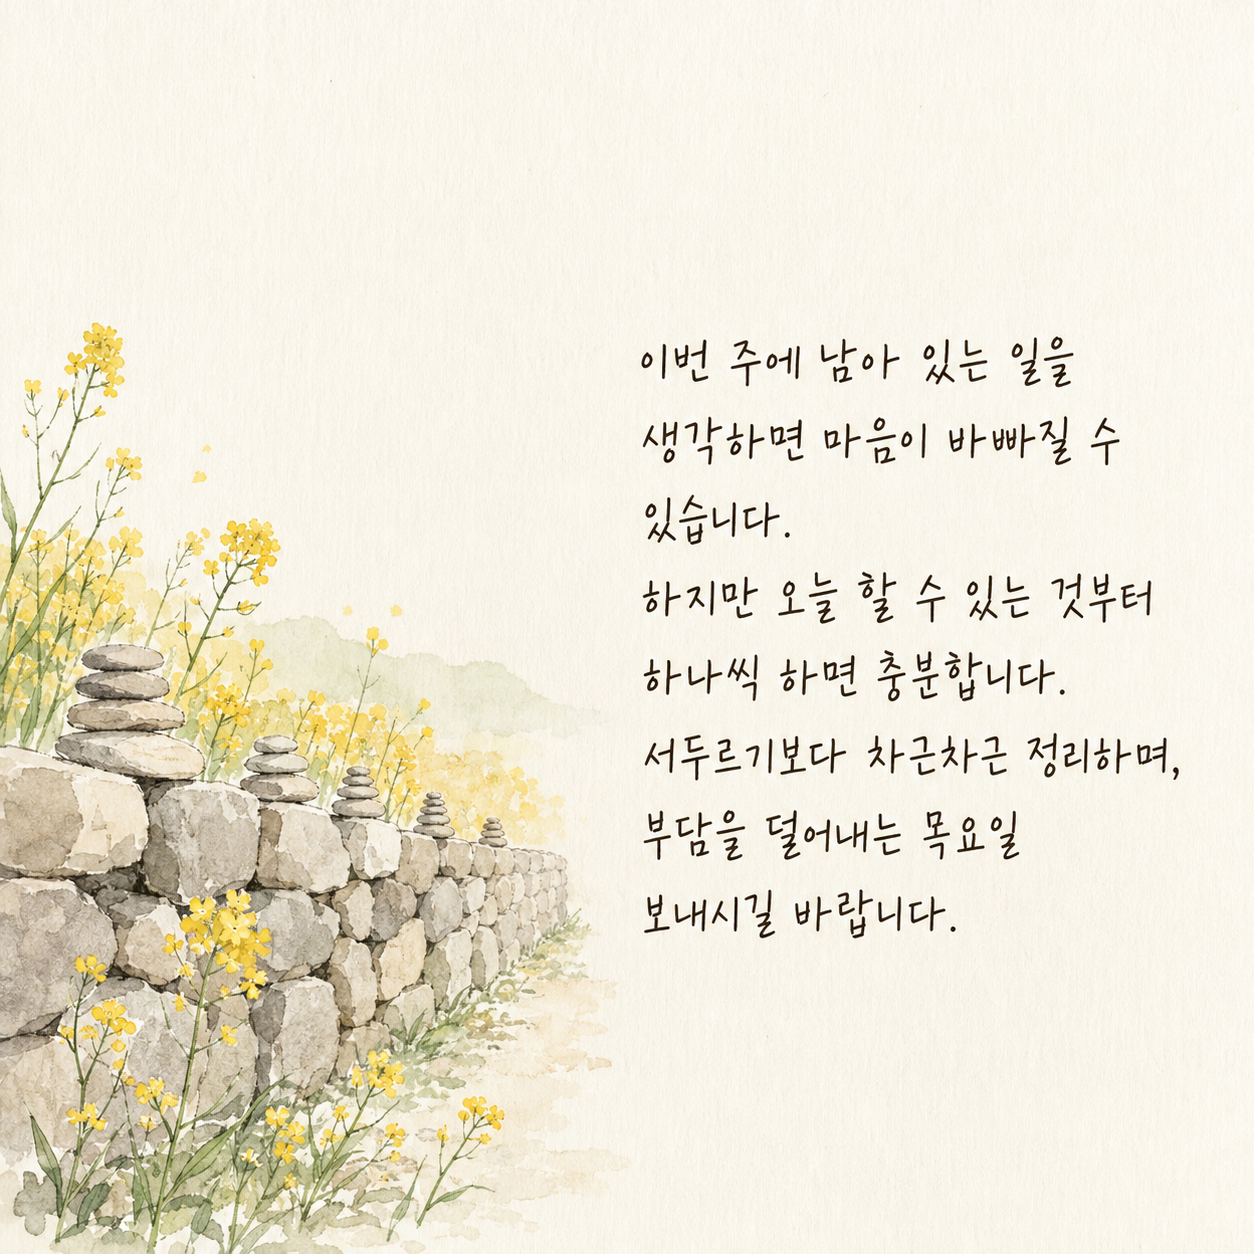 이번 주에 남아 있는 일을
생각하면 마음이 바빠질 수
있습니다.
하지만 오늘 할 수 있는 것부터
하나씩 하면 충분합니다.
서두르기보다 차근차근 정리하며,
부담을 덜어내는 목요일
보내시길 바랍니다.